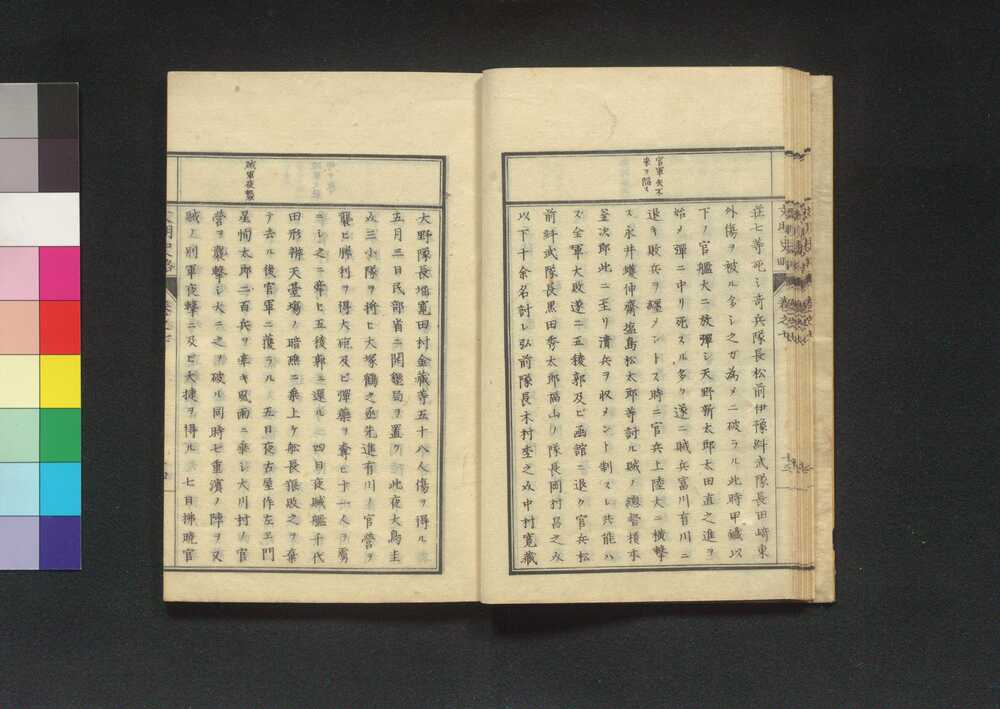 官軍矢不
來ヲ陷ル
荘七等死シ奇兵隊長松前伊豫糾武隊長田﨑東
外傷ヲ被ル多シ之ガ為メニ破ラル此時甲鐵以
下ノ官艦大ニ放彈シ天野新太郎太田直之進ヲ
始メ彈ニ中リ死スル多ク遂ニ賊兵富川有川ニ
退キ敗兵ヲ纏メントス時ニ官兵上陸大ニ横撃
ス永井蠖伸齋塩島松太郎等討ル賊ノ總督榎本
釜次郎此ニ至リ潰兵ヲ収メント制スレ共能ハ
ズ全軍大敗遂ニ五稜郭及ビ函館ニ退ク官兵松
前糾武隊長黒田秀太郎福山ノ隊長岡村昌之𠫤
以下十余名討レ弘前隊長木村杢之𠫤中村寛蔵
賊軍夜襲
大野隊長墻寛田村金藏等五十八人傷ヲ得ル
五月三日民部省ニ開墾局ヲ置ク 此夜大鳥圭
𠫤三小隊ヲ將ヒ大塚鶴之丞先進有川ノ官營ヲ
襲ヒ勝利ヲ得大砲及ビ彈藥ヲ奪ヒ十一人ヲ虜
ニシ之ニ奔ヒ五稜郭ニ還ル 四日夜賊艦千代
田形辨天臺場ノ暗礁ニ乗上ケ舩長誤敗之ヲ棄
テ去ル後官軍ニ獲ラル 五日夜古屋作左エ門
星恂太郎二百兵ヲ率キ風雨ニ乗シ大川村ノ官
營ヲ襲撃シ大ニ之ヲ破ル同時七重濱ノ陣ヲ又
賊ノ別軍夜撃ニ及ヒ大捷ヲ得ル 七日拂曉官